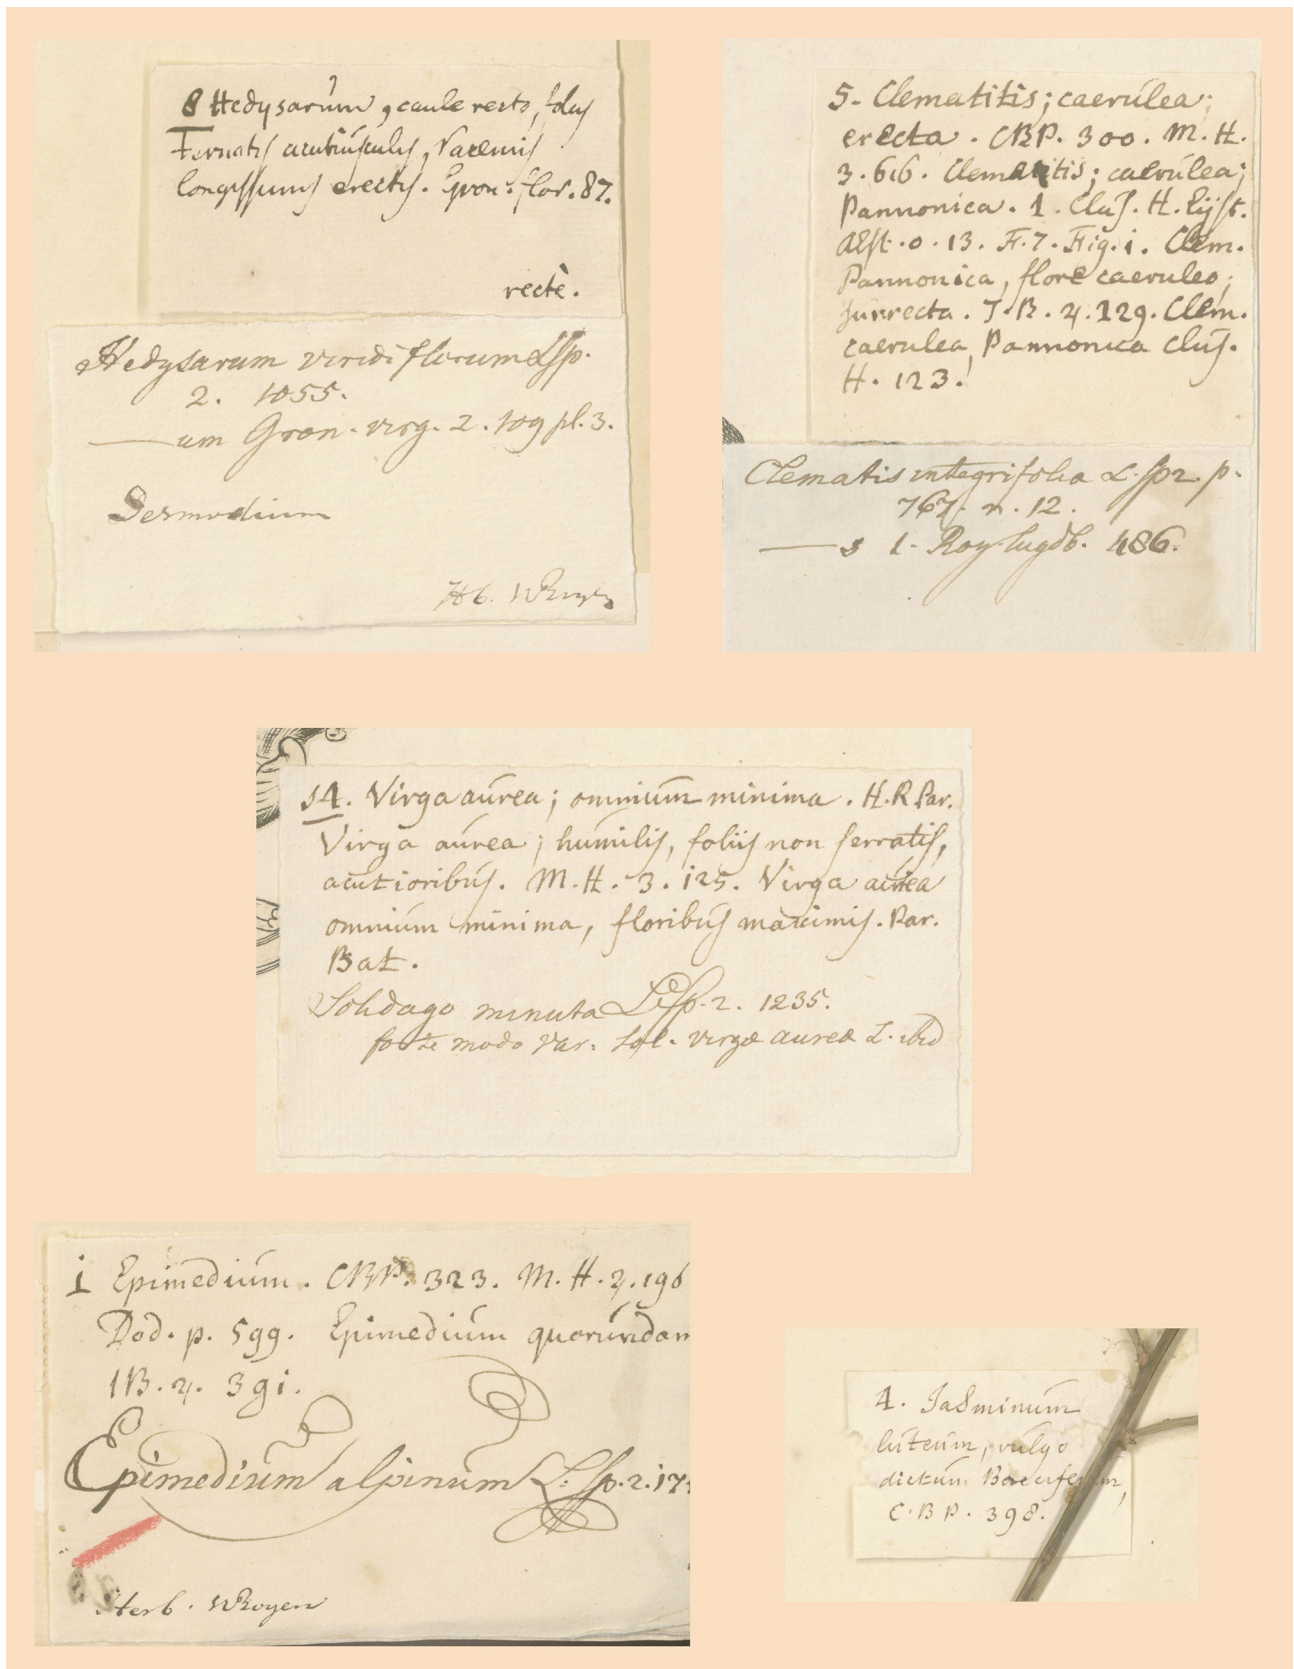 8 Hedysarúm, caule recto, folijs
Ternatis acutiúsculis, racemis
longissimis erectis. Gron. flor. 87.
rectè.
Hedysarum viridiflorum L Sp.
2. 1055.
——um Gron. virg. 2. 109 pl. 3.
Desmodium
Hb. VRoyen
5. Clematitis; caerúlea;
erecta. CBP. 300. M. H.
3. 616. Clematitis; caerúlea;
Pannonica. 1. Clus. H. Eyst.
Aest. o. 13. F. 7. Fig. i. Clem.
Pannonica, flore caeruleo;
surrecta. J. B. 2. 129. Clem.
caerulea Pannonica Clus.
H. 123.
Clematis integrifolia L. sp 2. p.
767. n. 12.
——s 1. Roy. lugdb. 486.
14. Virga aúrea; omniúm minima. H. R Par.
Virga aúrea; húmilis, foliis non serratis,
acutioribús. M. H. 3. 125. Virga aúrea
omniúm minima, floribús maximis. Par.
Bat.
Solidago minuta L. Sp. 2. 1235.
forte modo var. Sol. virgæ aureæ L. ibid
i Epimediúm. CBP. 323. M. H. 2. 196
Dod. p. 599. Epimediúm quorúndam
IB. 2. 39i.
Epimediúm alpinúm L. Sp. 2. 17
Herb. VRoyen
4. Jasminúm
lúteúm, vúlgo
dictúm Bacciferum,
C. B P. 398.